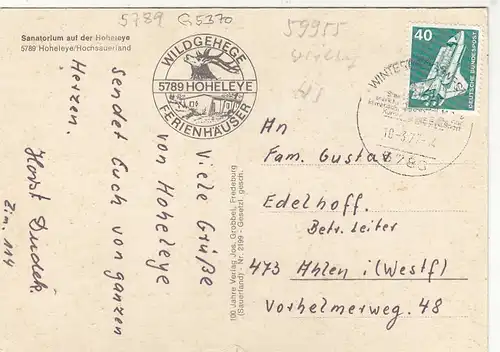 5789 G5370
59955
Sanatorium auf der Hoheleye
5789 Hoheleye/Hochsauerland
WILDGEHEGE
5789 HOHELEYE
FERIENHÄUSER
40
DEUTSCHE BUNDESPOST
Viele Grüße
von Hoheleye
sendet Euch von ganzen
Herzen.
Horst Dudek.
Zim. 114
100 Jahre Verlag Jos. Grobbel, Fredeburg
(Sauerland) - Nr. 2199 - Gesetzl. gesch.
An
Fam. Gustav
Edelhoff.
Betr. Leiter
473 Ahlen i(Westf)
Vorhelmerweg. 48